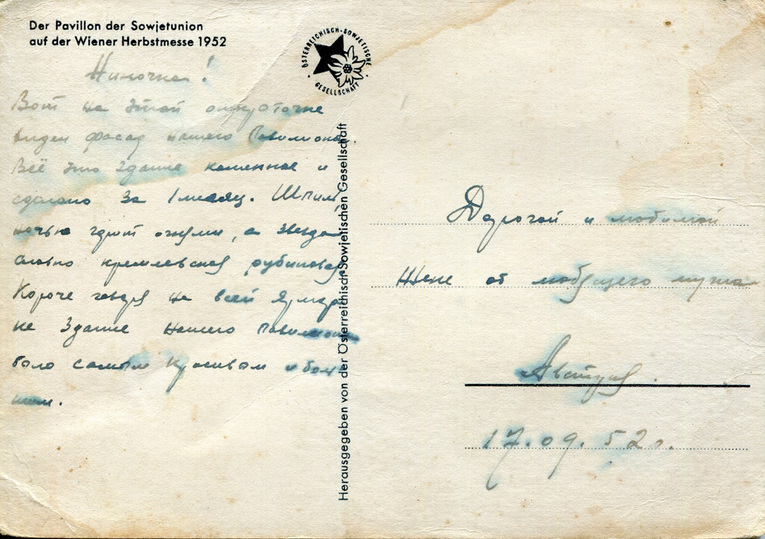 Der Pavillon der Sowjetunion
auf der Wiener Herbstmesse 1952
ÖSTERREICHISCH-SOWJETISCHE
GESELLSCHAFT
Ниночка!
Вот на этой открыточке
виден фасад нашего Павильона.
Всё это здание каменное и
сделано за 1 месяц. Шпиль
ночью горит огнями, а звезда
словно кремлевская рубиновая.
Короче говоря на всей Ярмар
ке здание нашего Павильона
было самым красивым и боль
шим.
Herausgegeben von der Österreichisch-Sowjetischen Gesellschaft
Дорогой и любимой
Жене от любящего мужа
Австрия.
17.09.52г.